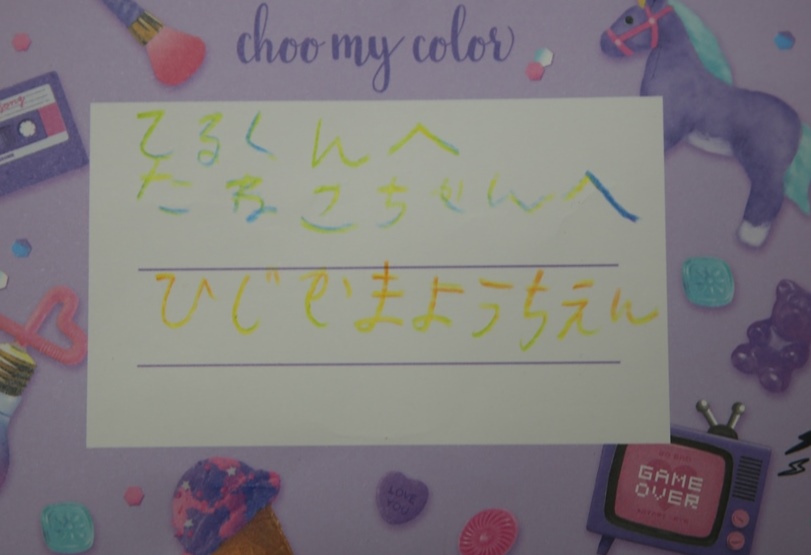 choo my color
てるくんへ
たなこちゃんへ
ひじやまようちえん
LOVE YOU
GAME OVER